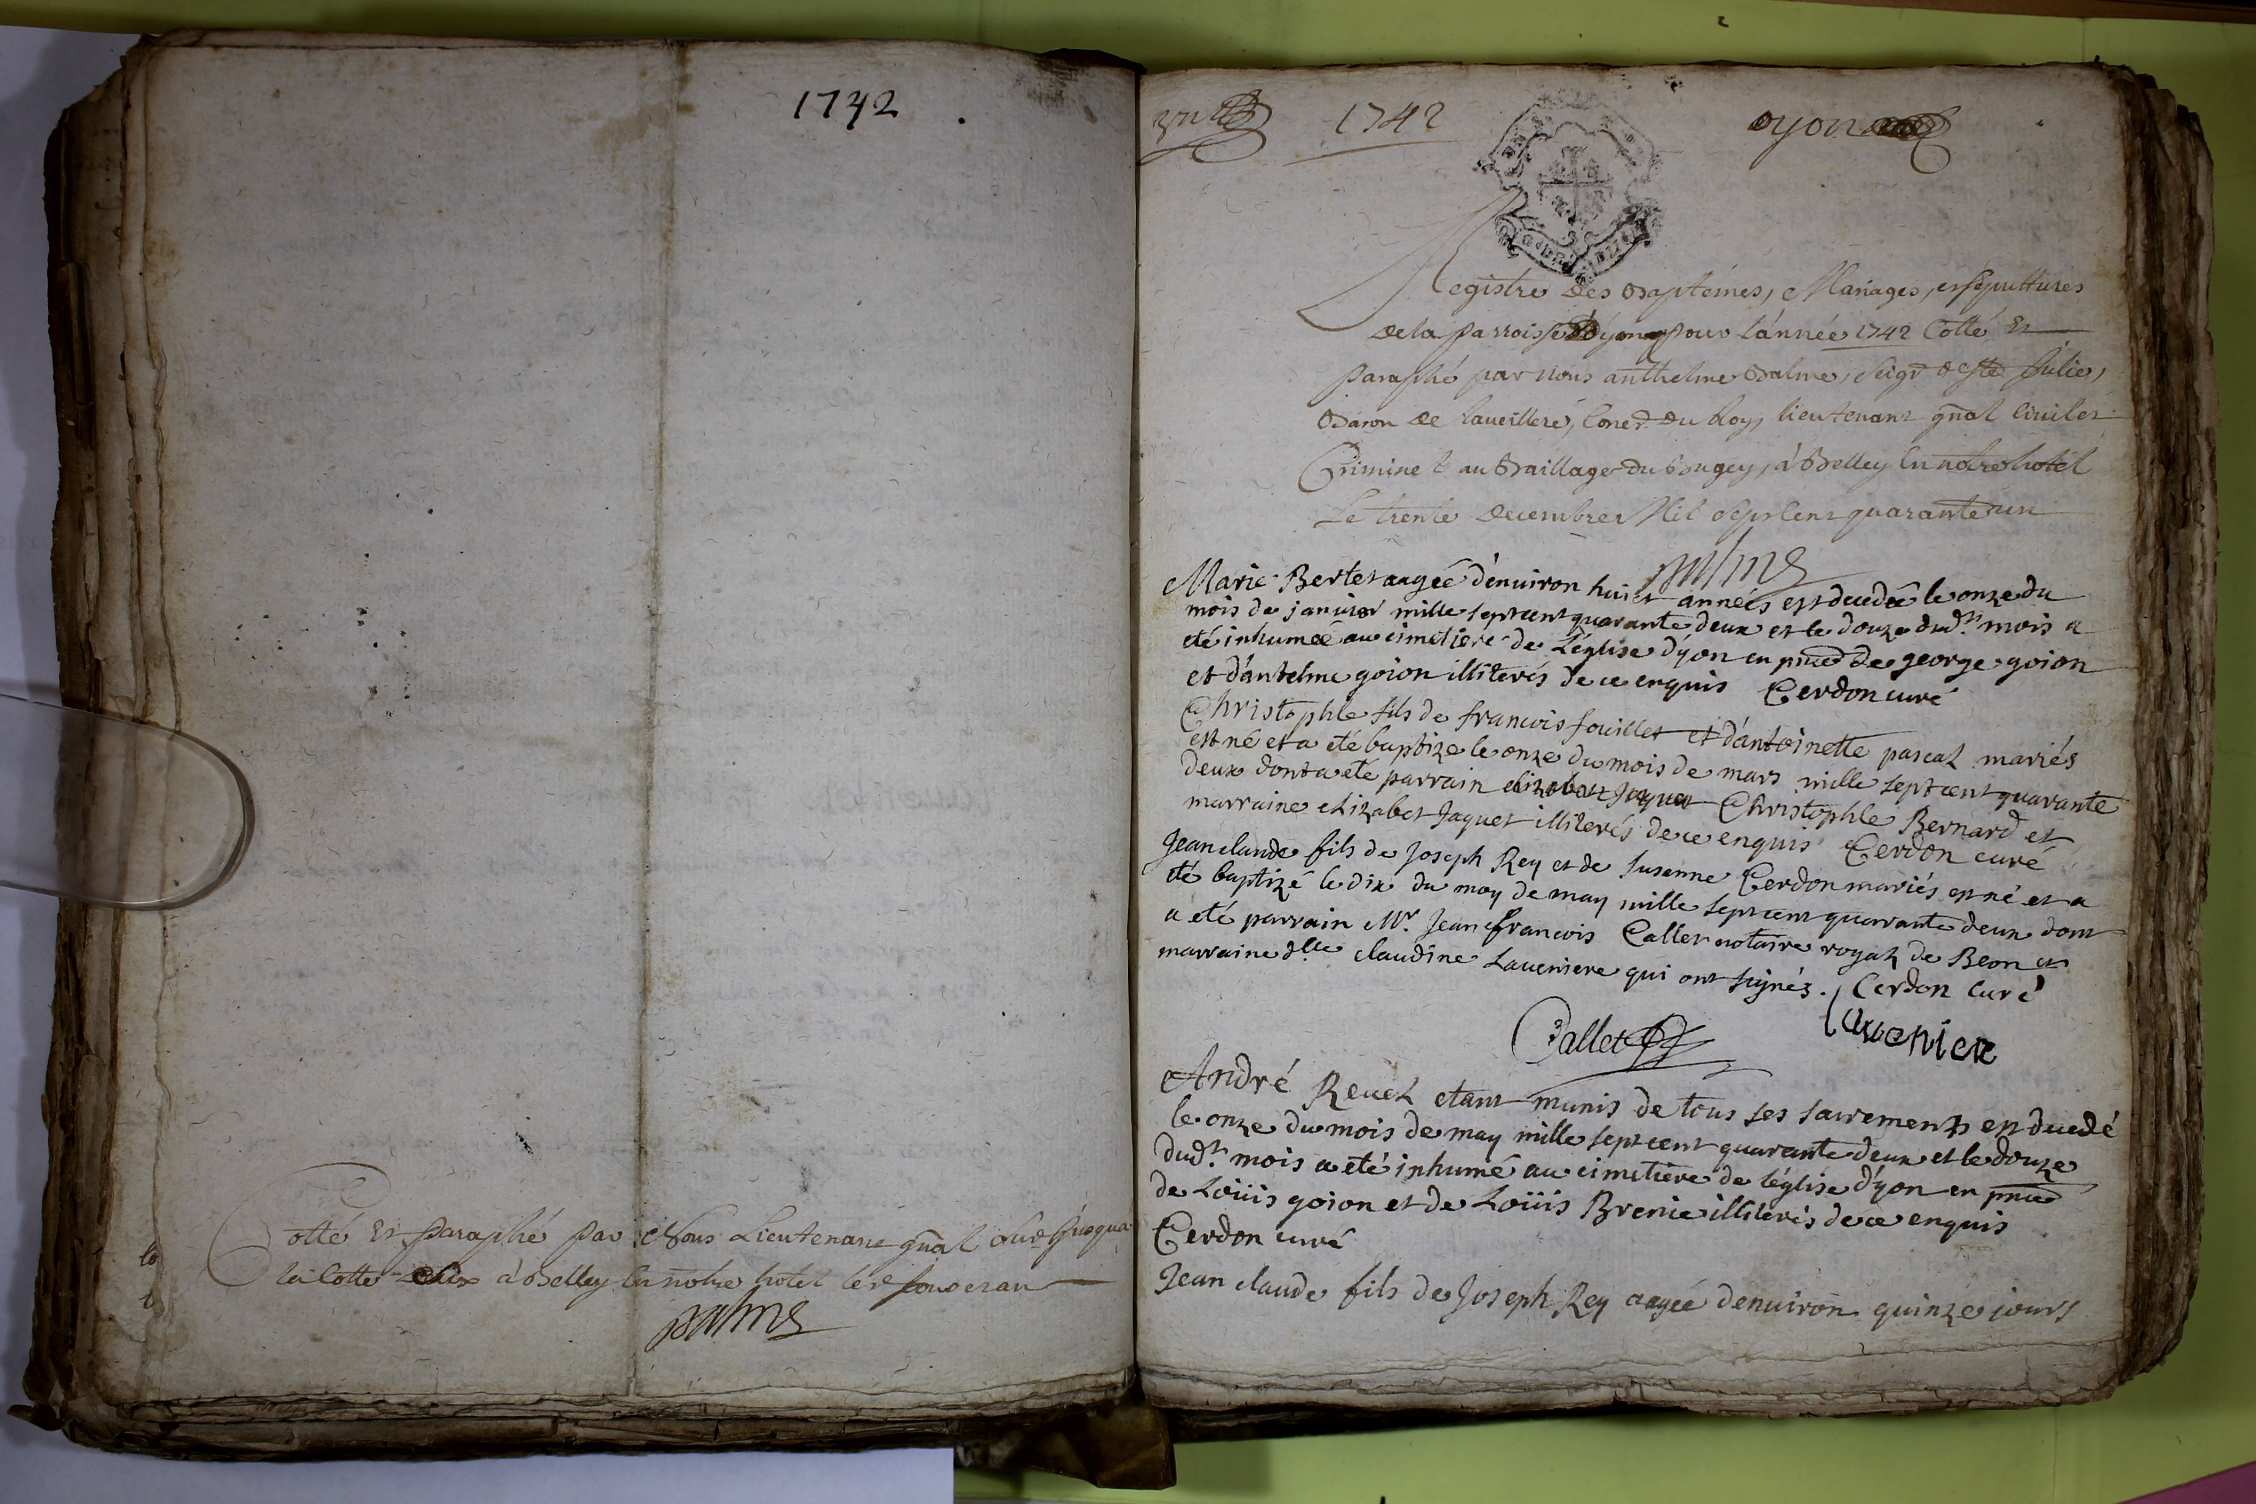 1742
Cotté Et Paraphé par Nous Lieutenant gñal
la Cotte dix à Belley En notre hotel les
Balme
1742
oyon
Registre des Baptémes, Mariages, et sépulttures
de la parroisse d'oyon pour l'année 1742 Cotté Et
Paraphé par Nous anthelme Balme, Seigr de Ste Julie,
Baron de Laveillere, Coner du Roy, lieutenant gñal Civil et
Criminel au Baillage du Bugey, à Belley En notre hotel
Le trente decembre Mil Sept Cent quarante un
Balme
Marie Bertet aagée d'environ huict années est decedée le onze du
mois de janvier mille sept cent quarante deux et le douze dudt mois a
eté inhumeé au cimetiere de L'église d'yon en pnce de george goion
et d'antelme goion illiterés de ce enquis Cerdon curé
Christophle fils de francois fouillet et d'antoinette pascal mariés
est né et a eté baptize le onze du mois de mars mille sept cent quarante
deux dont a eté parrain elizabet Jaquet Christophle Bernard et
marraine elizabet Jaquet illiterés de ce enquis Cerdon curé
Jean claude fils de Joseph Rey et de Susenne Cerdon mariés est né et a
eté baptizé le dix du moy de may mille sept cent quarante deux dont
a eté parrain Mr. Jean francois Callet notaire royal de Beon et
marraine dlle claudine Laveniere qui ont signés. Cerdon Curé
Callet
Lavenier
André Revel etant munis de tous ses sacrements est decedé
le onze du mois de may mille sept cent quarante deux et le douze
dudt mois a eté inhumé au cimetiere de l'église d'yon en pnce
de Loüis goion et de Loüis Brenie illiterés de ce enquis
Cerdon curé
Jean claude fils de Joseph Rey aagée d'environ quinze jours